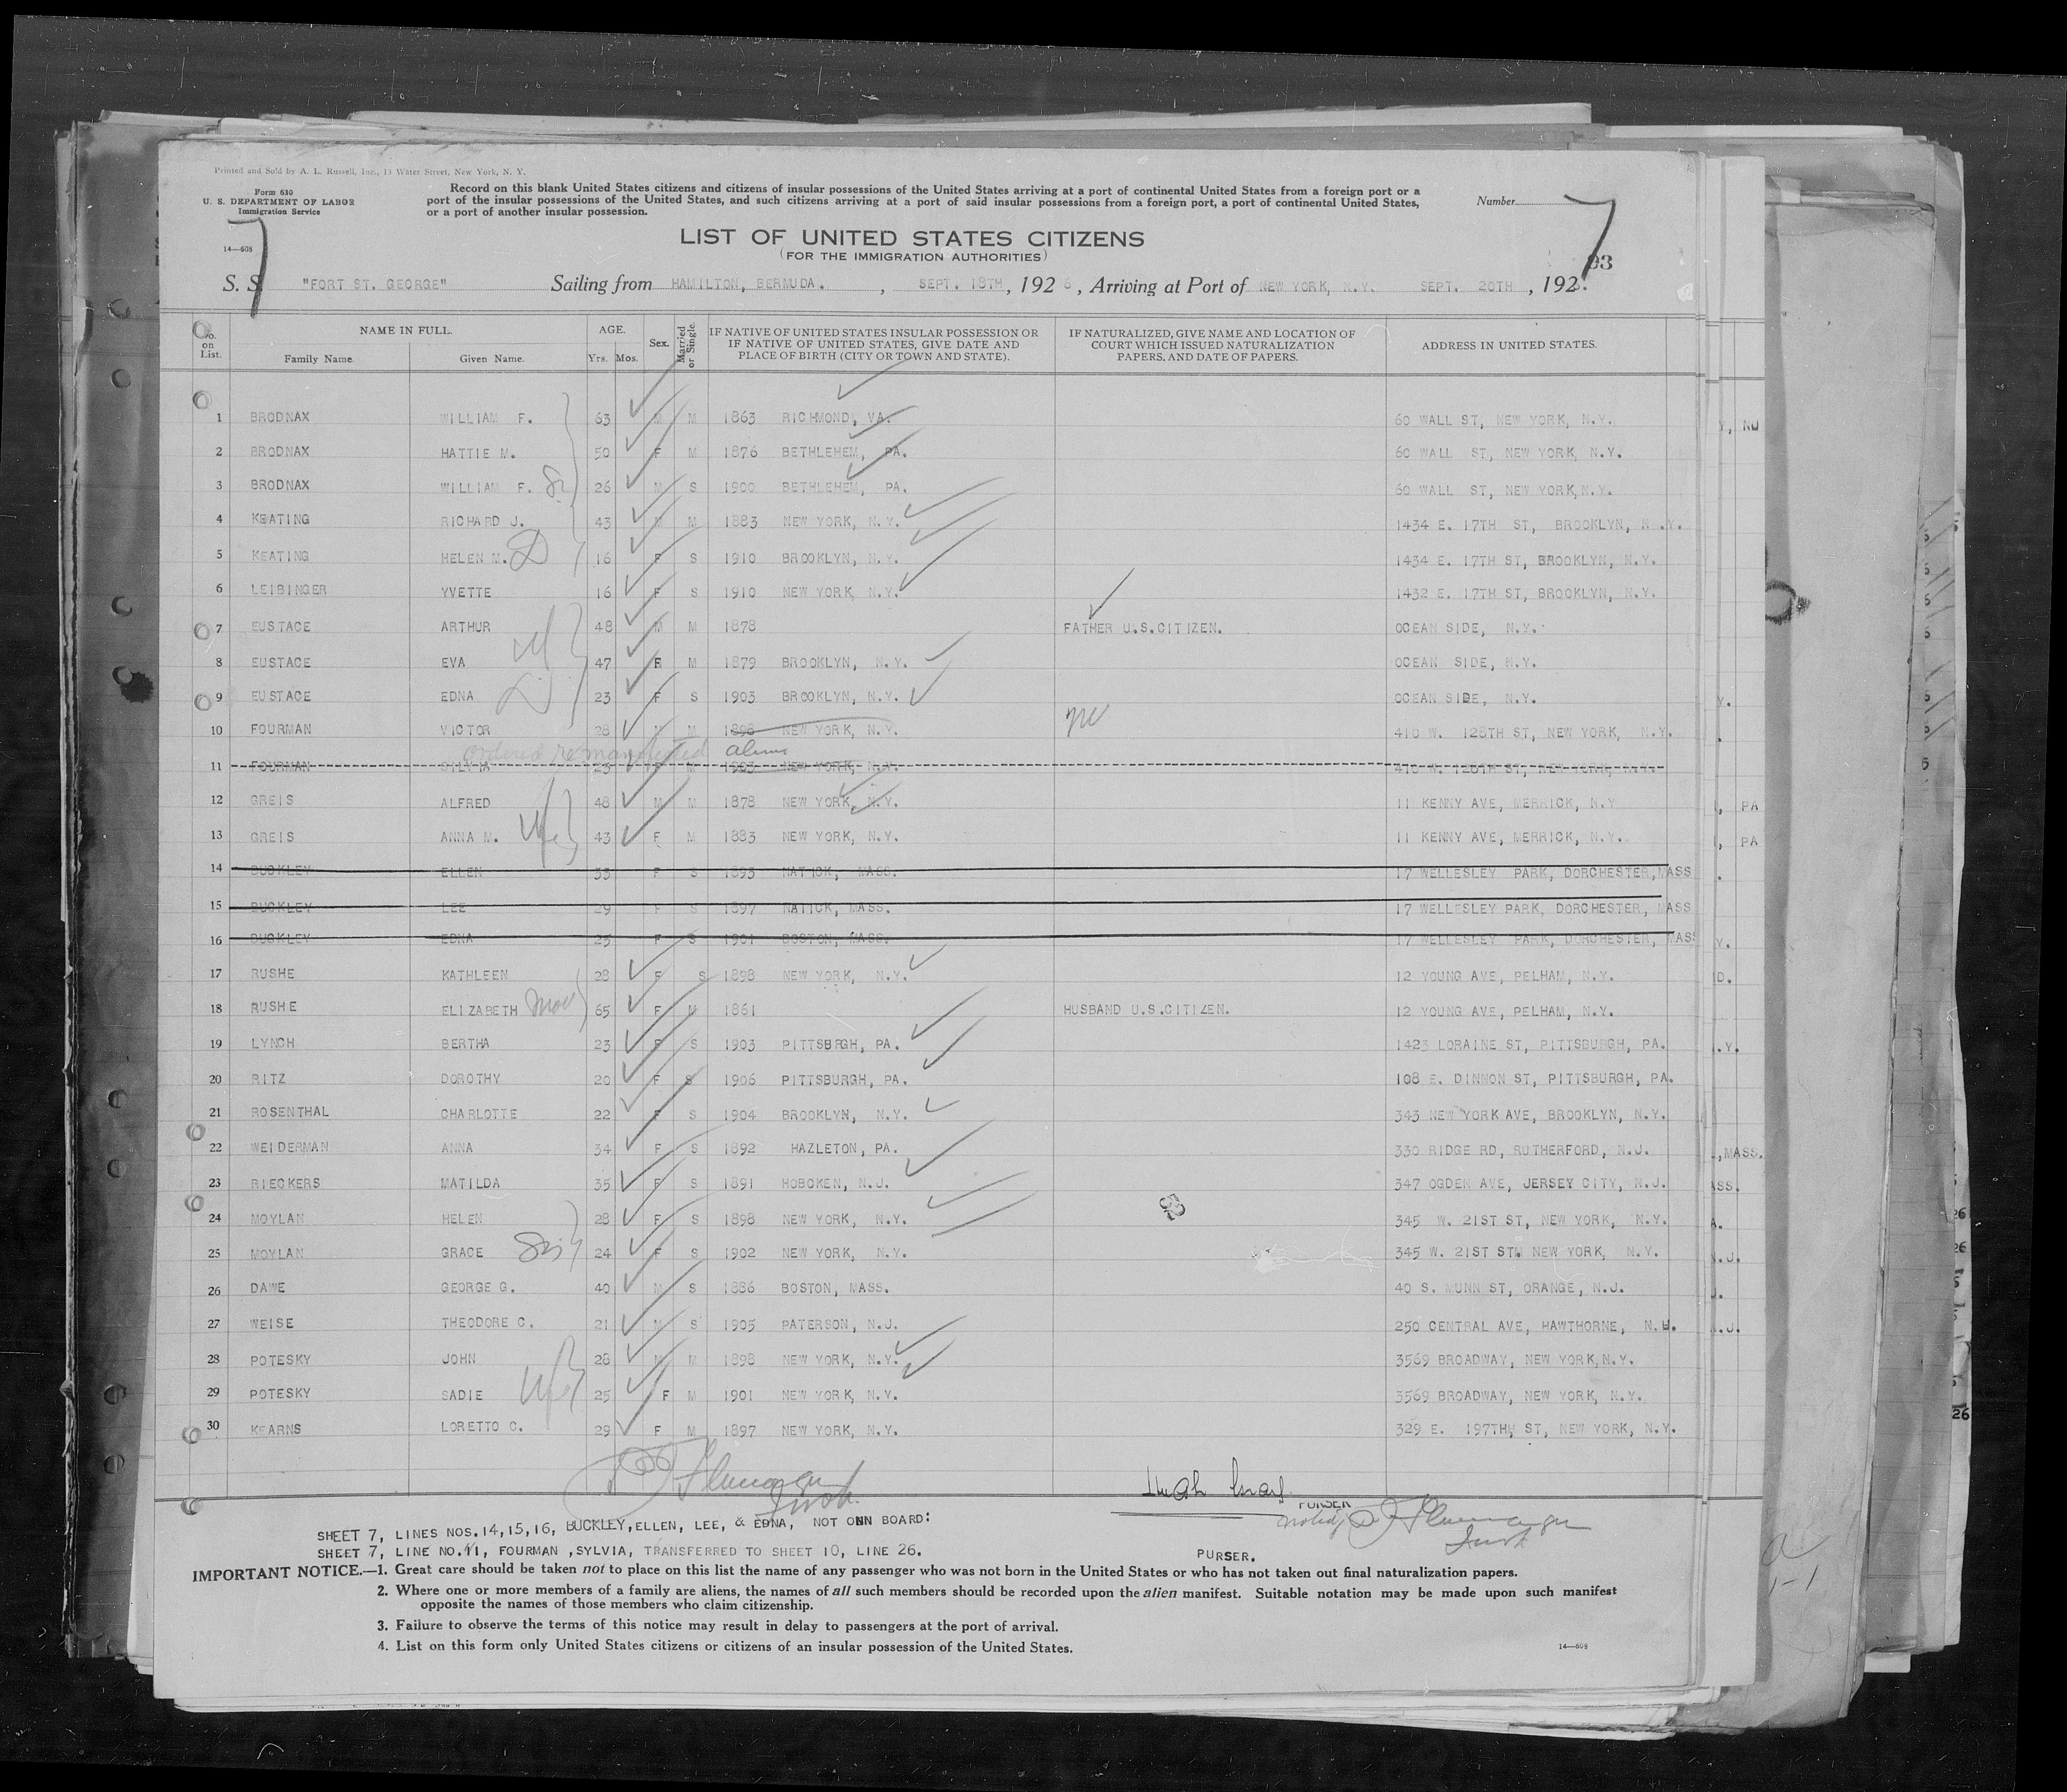 Printed and Sold by A. L. Russell, Inc., 13 Water Street, New York, N. Y.
Form 630
U. S. DEPARTMENT OF LABOR
Immigration Service
14—608
Record on this blank United States citizens and citizens of insular possessions of the United States arriving at a port of continental United States from a foreign port or a
port of the insular possessions of the United States, and such citizens arriving at a port of said insular possessions from a foreign port, a port of continental United States,
or a port of another insular possession.
Number
7
7
93
LIST OF UNITED STATES CITIZENS
(FOR THE IMMIGRATION AUTHORITIES)
S. S. "FORT ST. GEORGE" Sailing from HAMILTON, BERMUDA. , SEPT. 18TH, 1926, Arriving at Port of NEW YORK, N.Y. SEPT. 20TH, 192
No. on List. NAME IN FULL. Family Name. Given Name. AGE. Yrs. Mos. Sex. Married or Single. IF NATIVE OF UNITED STATES INSULAR POSSESSION OR IF NATIVE OF UNITED STATES, GIVE DATE AND PLACE OF BIRTH (CITY OR TOWN AND STATE). IF NATURALIZED, GIVE NAME AND LOCATION OF COURT WHICH ISSUED NATURALIZATION PAPERS, AND DATE OF PAPERS. ADDRESS IN UNITED STATES.
1 BRODNAX WILLIAM F. 63 M M 1863 RICHMOND, VA. 60 WALL ST, NEW YORK, N.Y.
2 BRODNAX HATTIE M. 50 F M 1876 BETHLEHEM, PA. 60 WALL ST, NEW YORK, N.Y.
3 BRODNAX WILLIAM F. 26 M S 1900 BETHLEHEM, PA. 60 WALL ST, NEW YORK,N.Y.
4 KEATING RICHARD J. 43 M M 1883 NEW YORK, N.Y. 1434 E. 17TH ST, BROOKLYN, N.Y.
5 KEATING HELEN M. D 16 F S 1910 BROOKLYN, N.Y. 1434 E. 17TH ST, BROOKLYN, N.Y.
6 LEIBINGER YVETTE 16 F S 1910 NEW YORK, N.Y. 1432 E. 17TH ST, BROOKLYN, N.Y.
7 EUSTACE ARTHUR 48 M M 1878 FATHER U.S.CITIZEN. OCEAN SIDE, N.Y.
8 EUSTACE EVA 47 F M 1879 BROOKLYN, N.Y. OCEAN SIDE, N.Y.
9 EUSTACE EDNA 23 F S 1903 BROOKLYN, N.Y. OCEAN SIDE, N.Y.
10 FOURMAN VICTOR 28 M M 1898 NEW YORK, N.Y. 410 W. 128TH ST, NEW YORK, N.Y.
Ordered remanifested alien
11 FOURMAN SILVIA 23 F M 1903 NEW YORK, N.Y. 410 W. 128TH ST, NEW YORK, N.Y.
12 GREIS ALFRED 48 M M 1878 NEW YORK, N.Y. 11 KENNY AVE, MERRICK, N.Y
13 GREIS ANNA M. Wf 43 F M 1883 NEW YORK, N.Y. 11 KENNY AVE, MERRICK, N.Y.
14 BUCKLEY ELLEN 33 F S 1893 NATICK, MASS. 17 WELLESLEY PARK, DORCHESTER,MASS
15 BUCKLEY LEE 29 F S 1897 NATICK, MASS. 17 WELLESLEY PARK, DORCHESTER, MASS
16 BUCKLEY EDNA 25 F S 1901 BOSTON, MASS. 17 WELLESLEY PARK, DORCHESTER, MAS
17 RUSHE KATHLEEN 28 F S 1898 NEW YORK, N.Y. 12 YOUNG AVE, PELHAM, N.Y.
18 RUSHE ELIZABETH 65 F M 1861 HUSBAND U.S.CITIZEN. 12 YOUNG AVE, PELHAM, N.Y.
19 LYNCH BERTHA 23 F S 1903 PITTSBRGH, PA. 1423 LORAINE ST, PITTSBURGH, PA.
20 RITZ DOROTHY 20 F S 1906 PITTSBURGH, PA. 108 E. DINNON ST, PITTSBURGH, PA.
21 ROSENTHAL CHARLOTTE 22 F S 1904 BROOKLYN, N.Y. 343 NEW YORK AVE, BROOKLYN, N.Y.
22 WEIDERMAN ANNA 34 F S 1892 HAZLETON, PA. 330 RIDGE RD, RUTHERFORD, N.J.
23 RIECKERS MATILDA 35 F S 1891 HOBOKEN, N.J. 347 OGDEN AVE, JERSEY CITY, N.J.
24 MOYLAN HELEN 28 F S 1898 NEW YORK, N.Y. 345 W. 21ST ST, NEW YORK, N.Y.
25 MOYLAN GRACE Sis 24 F S 1902 NEW YORK, N.Y. 345 W. 21ST ST, NEW YORK, N.Y.
26 DAWE GEORGE G. 40 M S 1886 BOSTON, MASS. 40 S. MUNN ST, ORANGE, N.J.
27 WEISE THEODORE C. 21 M S 1905 PATERSON, N.J. 250 CENTRAL AVE, HAWTHORNE, N.J.
28 POTESKY JOHN 28 M M 1898 NEW YORK, N.Y. 3569 BROADWAY, NEW YORK,N.Y.
29 POTESKY SADIE Wf 25 F M 1901 NEW YORK, N.Y. 3569 BROADWAY, NEW YORK, N.Y.
30 KEARNS LORETTO C. 29 F M 1897 NEW YORK, N.Y. 329 E. 197TH ST, NEW YORK, N.Y.
PURSER
SHEET 7, LINES NOS.14,15,16, BUCKLEY,ELLEN, LEE, & EDNA, NOT ON BOARD:
SHEET 7, LINE NO.11, FOURMAN ,SYLVIA, TRANSFERRED TO SHEET 10, LINE 26. PURSER.
IMPORTANT NOTICE.—1. Great care should be taken not to place on this list the name of any passenger who was not born in the United States or who has not taken out final naturalization papers.
2. Where one or more members of a family are aliens, the names of all such members should be recorded upon the alien manifest. Suitable notation may be made upon such manifest
opposite the names of those members who claim citizenship.
3. Failure to observe the terms of this notice may result in delay to passengers at the port of arrival.
4. List on this form only United States citizens or citizens of an insular possession of the United States.
14—608